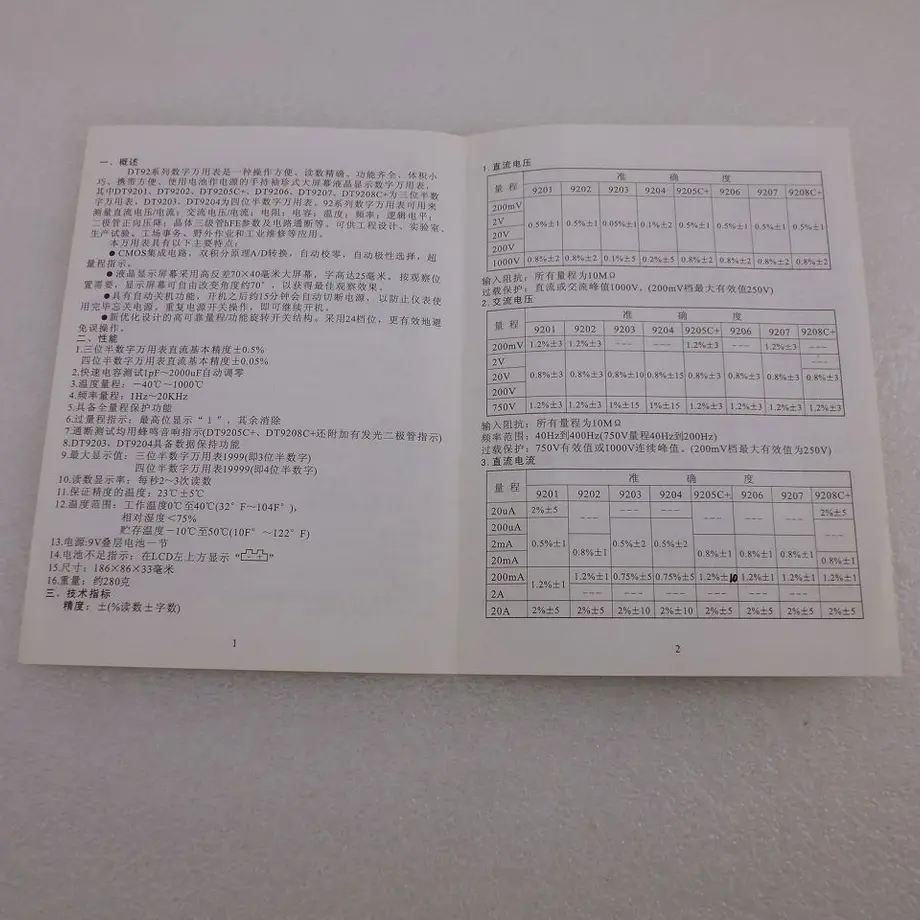 一、概述
DT92系列数字万用表是一种操作方便、读数精确、功能齐全、体积小
巧、携带方便、使用电池作电源的手持袖珍式大屏幕液晶显示数字万用表。
其中DT9201、DT9202、DT9205C+、DT9206、DT9207、DT9208C+为三位半数
字万用表，DT9203、DT9204为四位半数字万用表。92系列数字万用表可用来
测量直流电压/电流；交流电压/电流；电阻；电容；温度；频率；逻辑电平；
二极管正向压降；晶体三级管hFE参数及电路通断等。可供工程设计、实验室、
生产试验、工场事务、野外作业和工业维修等应用。
本万用表具有以下主要特点：
●CMOS集成电路，双积分原理A/D转换，自动校零，自动极性选择，超
量程指示。
●液晶显示屏幕采用高反差70×40毫米大屏幕，字高达25毫米。按观察位
置需要，显示屏幕可自由改变角度约70°，以获得最佳观察效果。
●具有自动关机功能，开机之后约15分钟会自动切断电源，以防止仪表使
用完毕忘关电源。重复电源开关操作，即可继续开机。
●新优化设计的高可靠量程/功能旋转开关结构。采用24档位，更有效地避
免误操作。
二、性能
1.三位半数字万用表直流基本精度±0.5%
四位半数字万用表直流基本精度±0.05%
2.快速电容测试1pF～2000uF自动调零
3.温度量程：-40℃～1000℃
4.频率量程：1Hz～20KHz
5.具备全量程保护功能
6.过量程指示：最高位显示“1”，其余消除
7.通断测试均用蜂鸣音响指示(DT9205C+、DT9208C+还附加有发光二极管指示)
8.DT9203、DT9204具备数据保持功能
9.最大显示值：三位半数字万用表1999(即3位半数字)
四位半数字万用表19999(即4位半数字)
10.读数显示率：每秒2～3次读数
11.保证精度的温度：23℃±5℃
12.温度范围：工作温度0℃至40℃(32°F～104F°)，
相对湿度＜75%
贮存温度-10℃至50℃(10F°～122°F)
13.电源:9V叠层电池一节
14.电池不足指示：在LCD左上方显示“ ”
15.尺寸：186×86×33毫米
16.重量：约280克
三、技术指标
精度：±(%读数±字数)
1
1.直流电压
量程 准确度
9201 9202 9203 9204 9205C+ 9206 9207 9208C+
200mV
2V 0.5%±1 0.5%±1 0.05%±1 0.1%±2 0.5%±1 0.5%±1 0.5%±1 0.5%±1
20V
200V
1000V 0.8%±2 0.8%±2 0.1%±5 0.2%±5 0.8%±2 0.8%±2 0.8%±2 0.8%±2
输入阻抗：所有量程为10MΩ
过载保护：直流或交流峰值1000V。(200mV档最大有效值250V)
2.交流电压
量程 准确度
9201 9202 9203 9204 9205C+ 9206 9207 9208C+
200mV 1.2%±3 1.2%±3 --- --- 1.2%±3 --- 1.2%±3 ---
2V
20V 0.8%±3 0.8%±3 0.8%±10 0.8%±15 0.8%±3 0.8%±3 0.8%±3 0.8%±3
200V
750V 1.2%±3 1.2%±3 1%±15 1%±15 1.2%±3 1.2%±3 1.2%±3 1.2%±3
输入阻抗：所有量程为10MΩ
频率范围：40Hz到400Hz(750V量程40Hz到200Hz)
过载保护：750V有效值或1000V连续峰值。(200mV档最大有效值为250V)
3.直流电流
量程 准确度
9201 9202 9203 9204 9205C+ 9206 9207 9208C+
20uA 2%±5 --- --- --- --- --- --- 2%±5
200uA ---
2mA 0.5%±1 0.8%±1 0.5%±2 0.5%±2 0.8%±1 0.8%±1 0.8%±1
20mA 0.8%±1
200mA 1.2%±1 1.2%±1 0.75%±5 0.75%±5 1.2%±10 1.2%±1 1.2%±1 1.2%±1
2A --- --- --- --- --- --- ---
20A 2%±5 2%±5 2%±10 2%±10 2%±5 2%±5 2%±5 2%±5
2